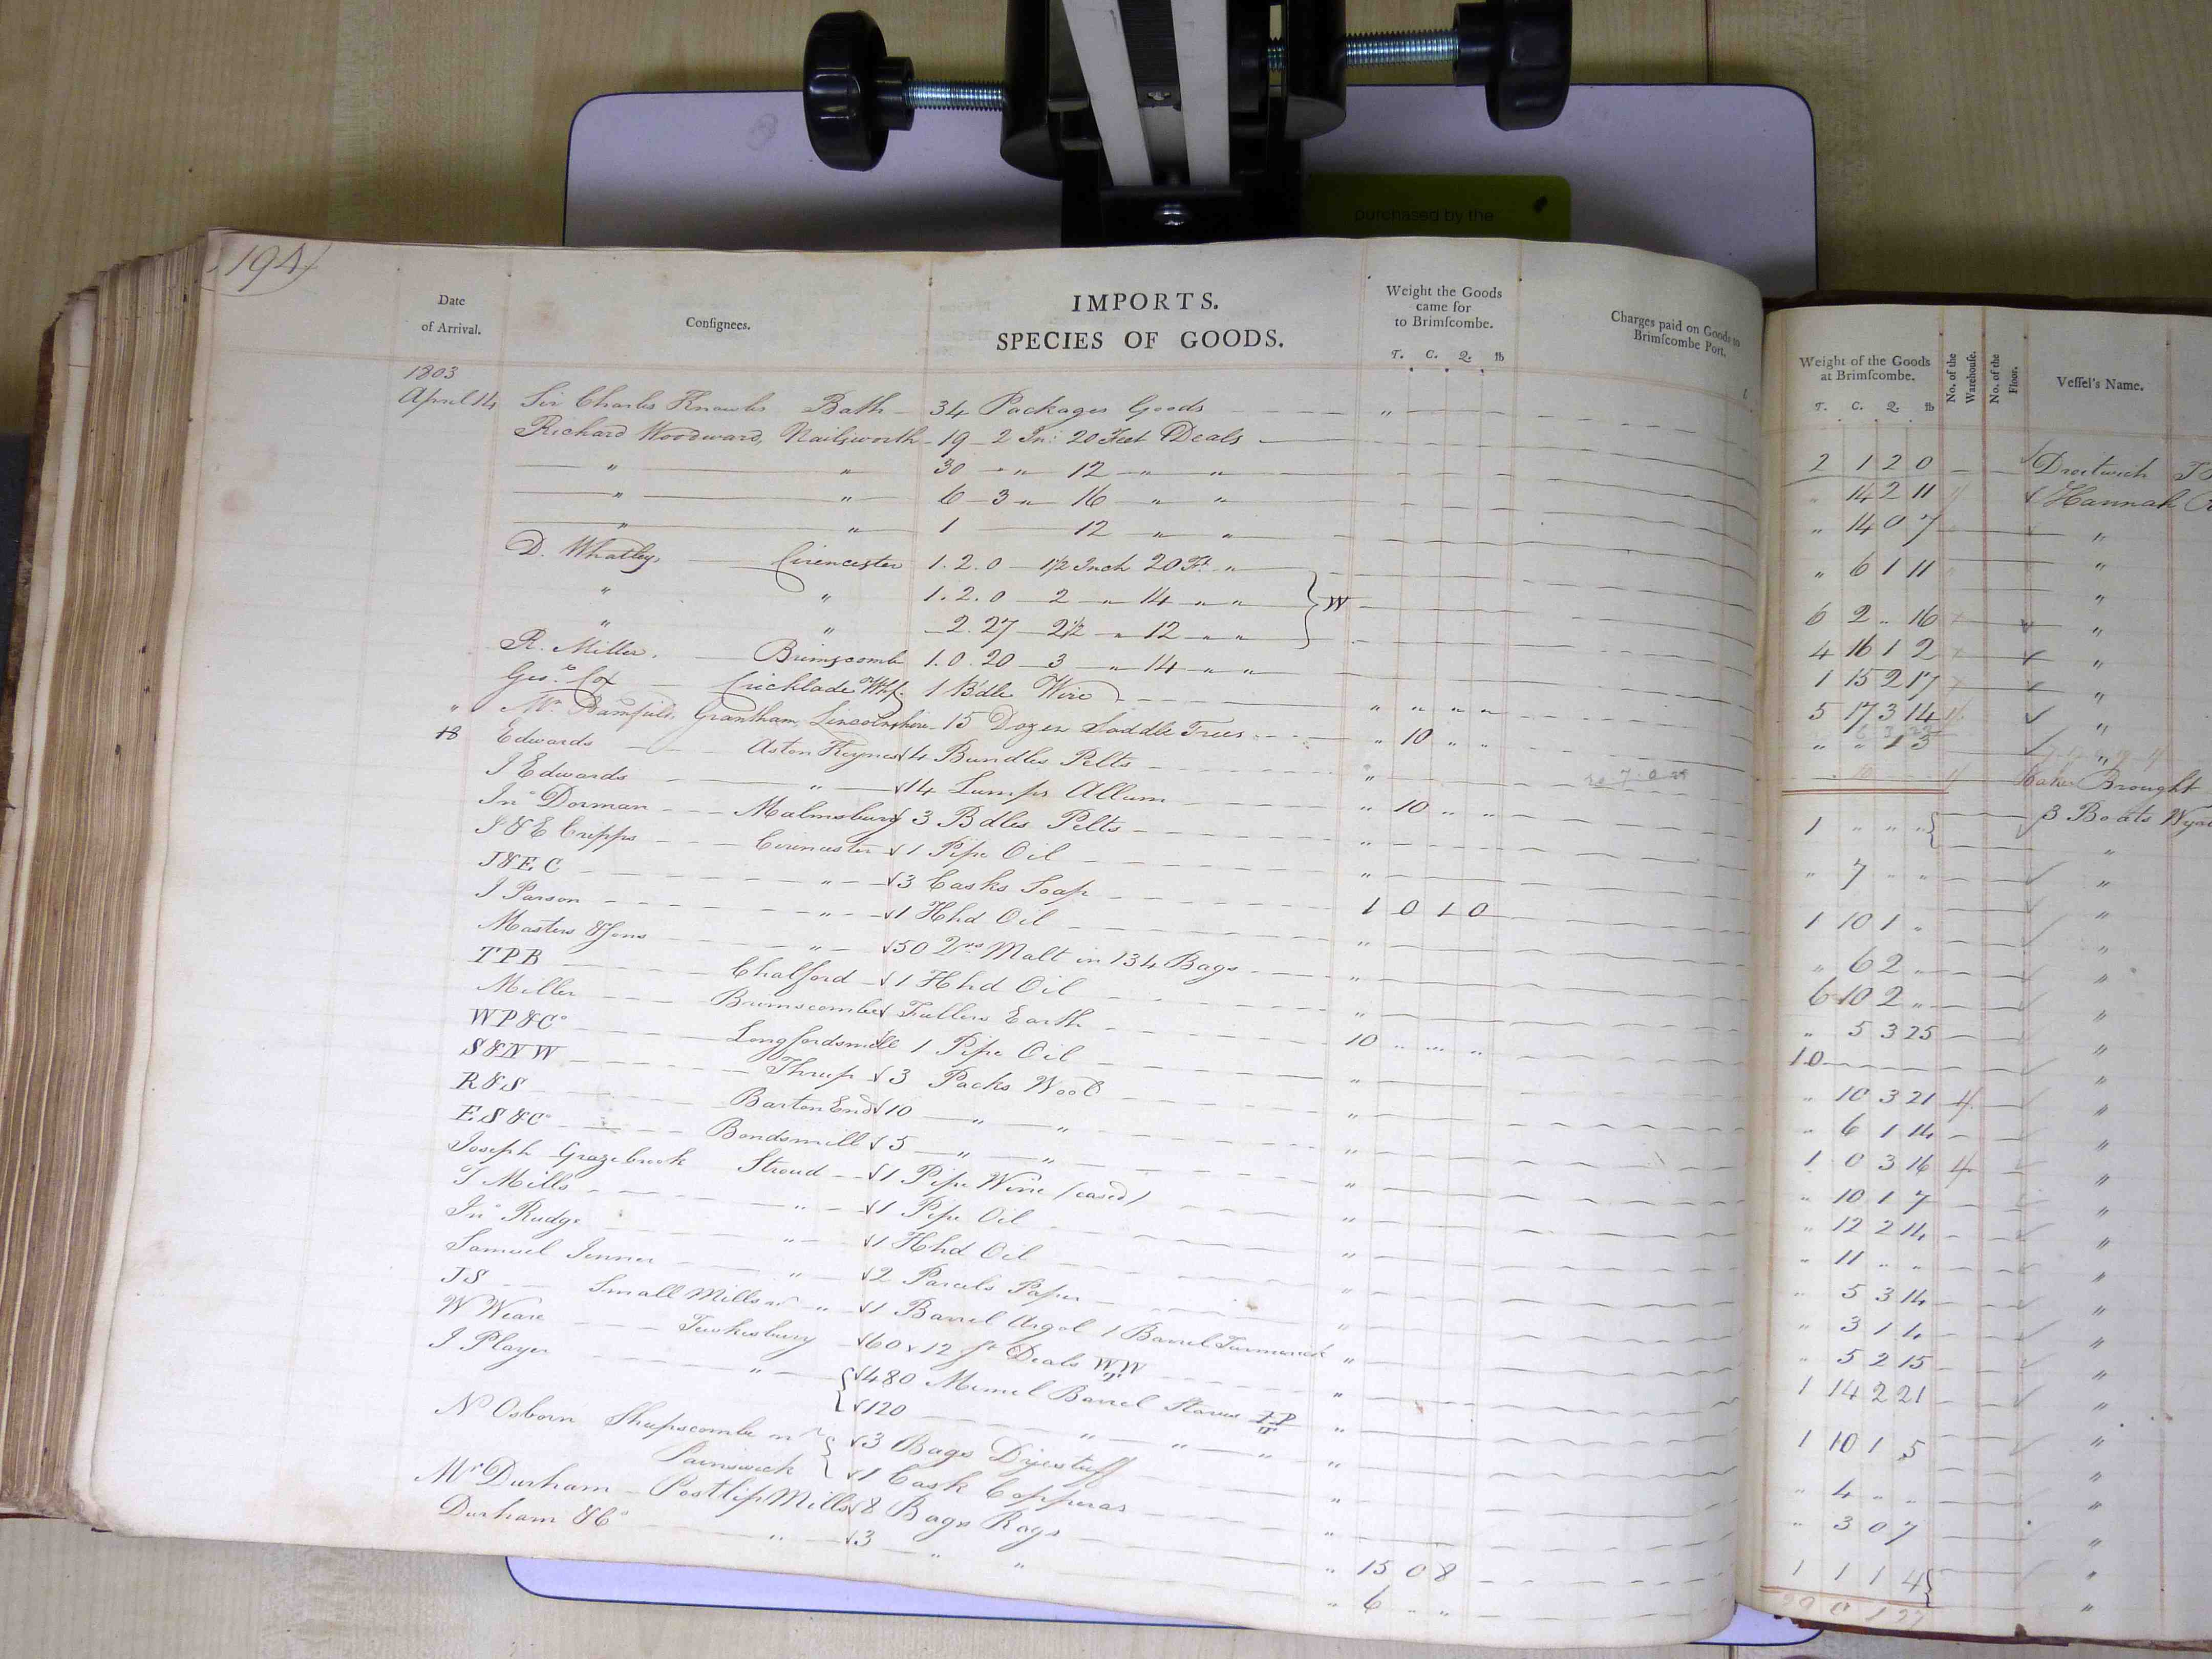 194
purchased by the
Date of Arrival.
Consignees.
IMPORTS.
SPECIES OF GOODS.
Weight the Goods came for to Brimscombe.
T. C. Q. lb
Charges paid on Goods to Brimscombe Port,
Weight of the Goods at Brimscombe.
T. C. Q. lb
No. of the Warehouse.
No. of the Floor.
Vessel's Name.
1803
April 14 Sir Charles Knowles Bath 34 Packages Goods " 2 1 2 0 Droitwich
Richard Woodward, Nailsworth 19 2 In: 20 Feet Deals " 14 2 11 Hannah
" " 30 " 12 " " " 14 0 7 "
" " 6 3 " 16 " " " 6 1 11 "
" " 1 12 " "
D. Whatley Cirencester 1.2.0 1½ Inch 20 Ft " 6 2 " 16 "
" " 1.2.0 2 " 14 " " W 4 16 1 2 "
" " 2.27 2½ " 12 " " 1 15 2 17 "
R. Miller. Brimscomb 1.0.20 3 " 14 " " 5 17 3 14 "
Geo. Cox Cricklade Whf. 1 Bdle Wire " " " " " " 1 3 "
" Mr. Bamfield, Grantham Lincolnshire 15 Dozen Saddle Trees " 10 " " Brought
18 Edwards Aston Keynes 4 Bundles Pelts " 3 Boats
J Edwards " 14 Lumps Allum " 10 " " 1 " " " "
Jno Dorman Malmsbury 3 Bdles Pelts " " 7 " " "
J & E Cripps Cirencester 1 Pipe Oil " "
J&EC " 3 Casks Soap 1 0 1 0 1 10 1 " "
J Parson " 1 Hhd Oil " " 6 2 " "
Masters & Sons " 50 Qrs Malt in 134 Bags " 6 10 2 " "
TPB Chalford 1 Hhd Oil " " 5 3 25 "
Miller Brimscombe Fullers Earth 10 " " " 10 "
WP&Co Longfordsmill 1 Pipe Oil " " 10 3 21 4 "
S&NW Thrup 3 Packs Wool " " 6 1 14 "
R&S Barton End 10 " " " 1 0 3 16 4 "
ES&Co Bondsmill 5 " " " " 10 1 7 "
Joseph Grazebrook Stroud 1 Pipe Wine (cased) " " 12 2 14 "
T Mills " 1 Pipe Oil " " 11 " " "
Jno Rudge " 1 Hhd Oil " " 5 3 14 "
Samuel Jenner " 2 Parcels Paper " " 3 1 4 "
JS Small Mills nr " 1 Barrel Argol 1 Barrel Turmerick " " 5 2 15 "
W Weare Tewkesbury 60 12 ft Deals WW " 1 14 2 21 "
J Player " 480 Memel Barrel Staves " 1 10 1 5 "
120 " " " "
N Osborn Shepscombe nr 3 Bags Dyestuff " " 4 " " "
Painswick 1 Cask Copperas " " 3 0 7 "
Mr Durham Postlip Mills 8 Bags Rags " 15 0 8 1 1 1 4 "
Durham & Co " 3 " " " 6 " " "